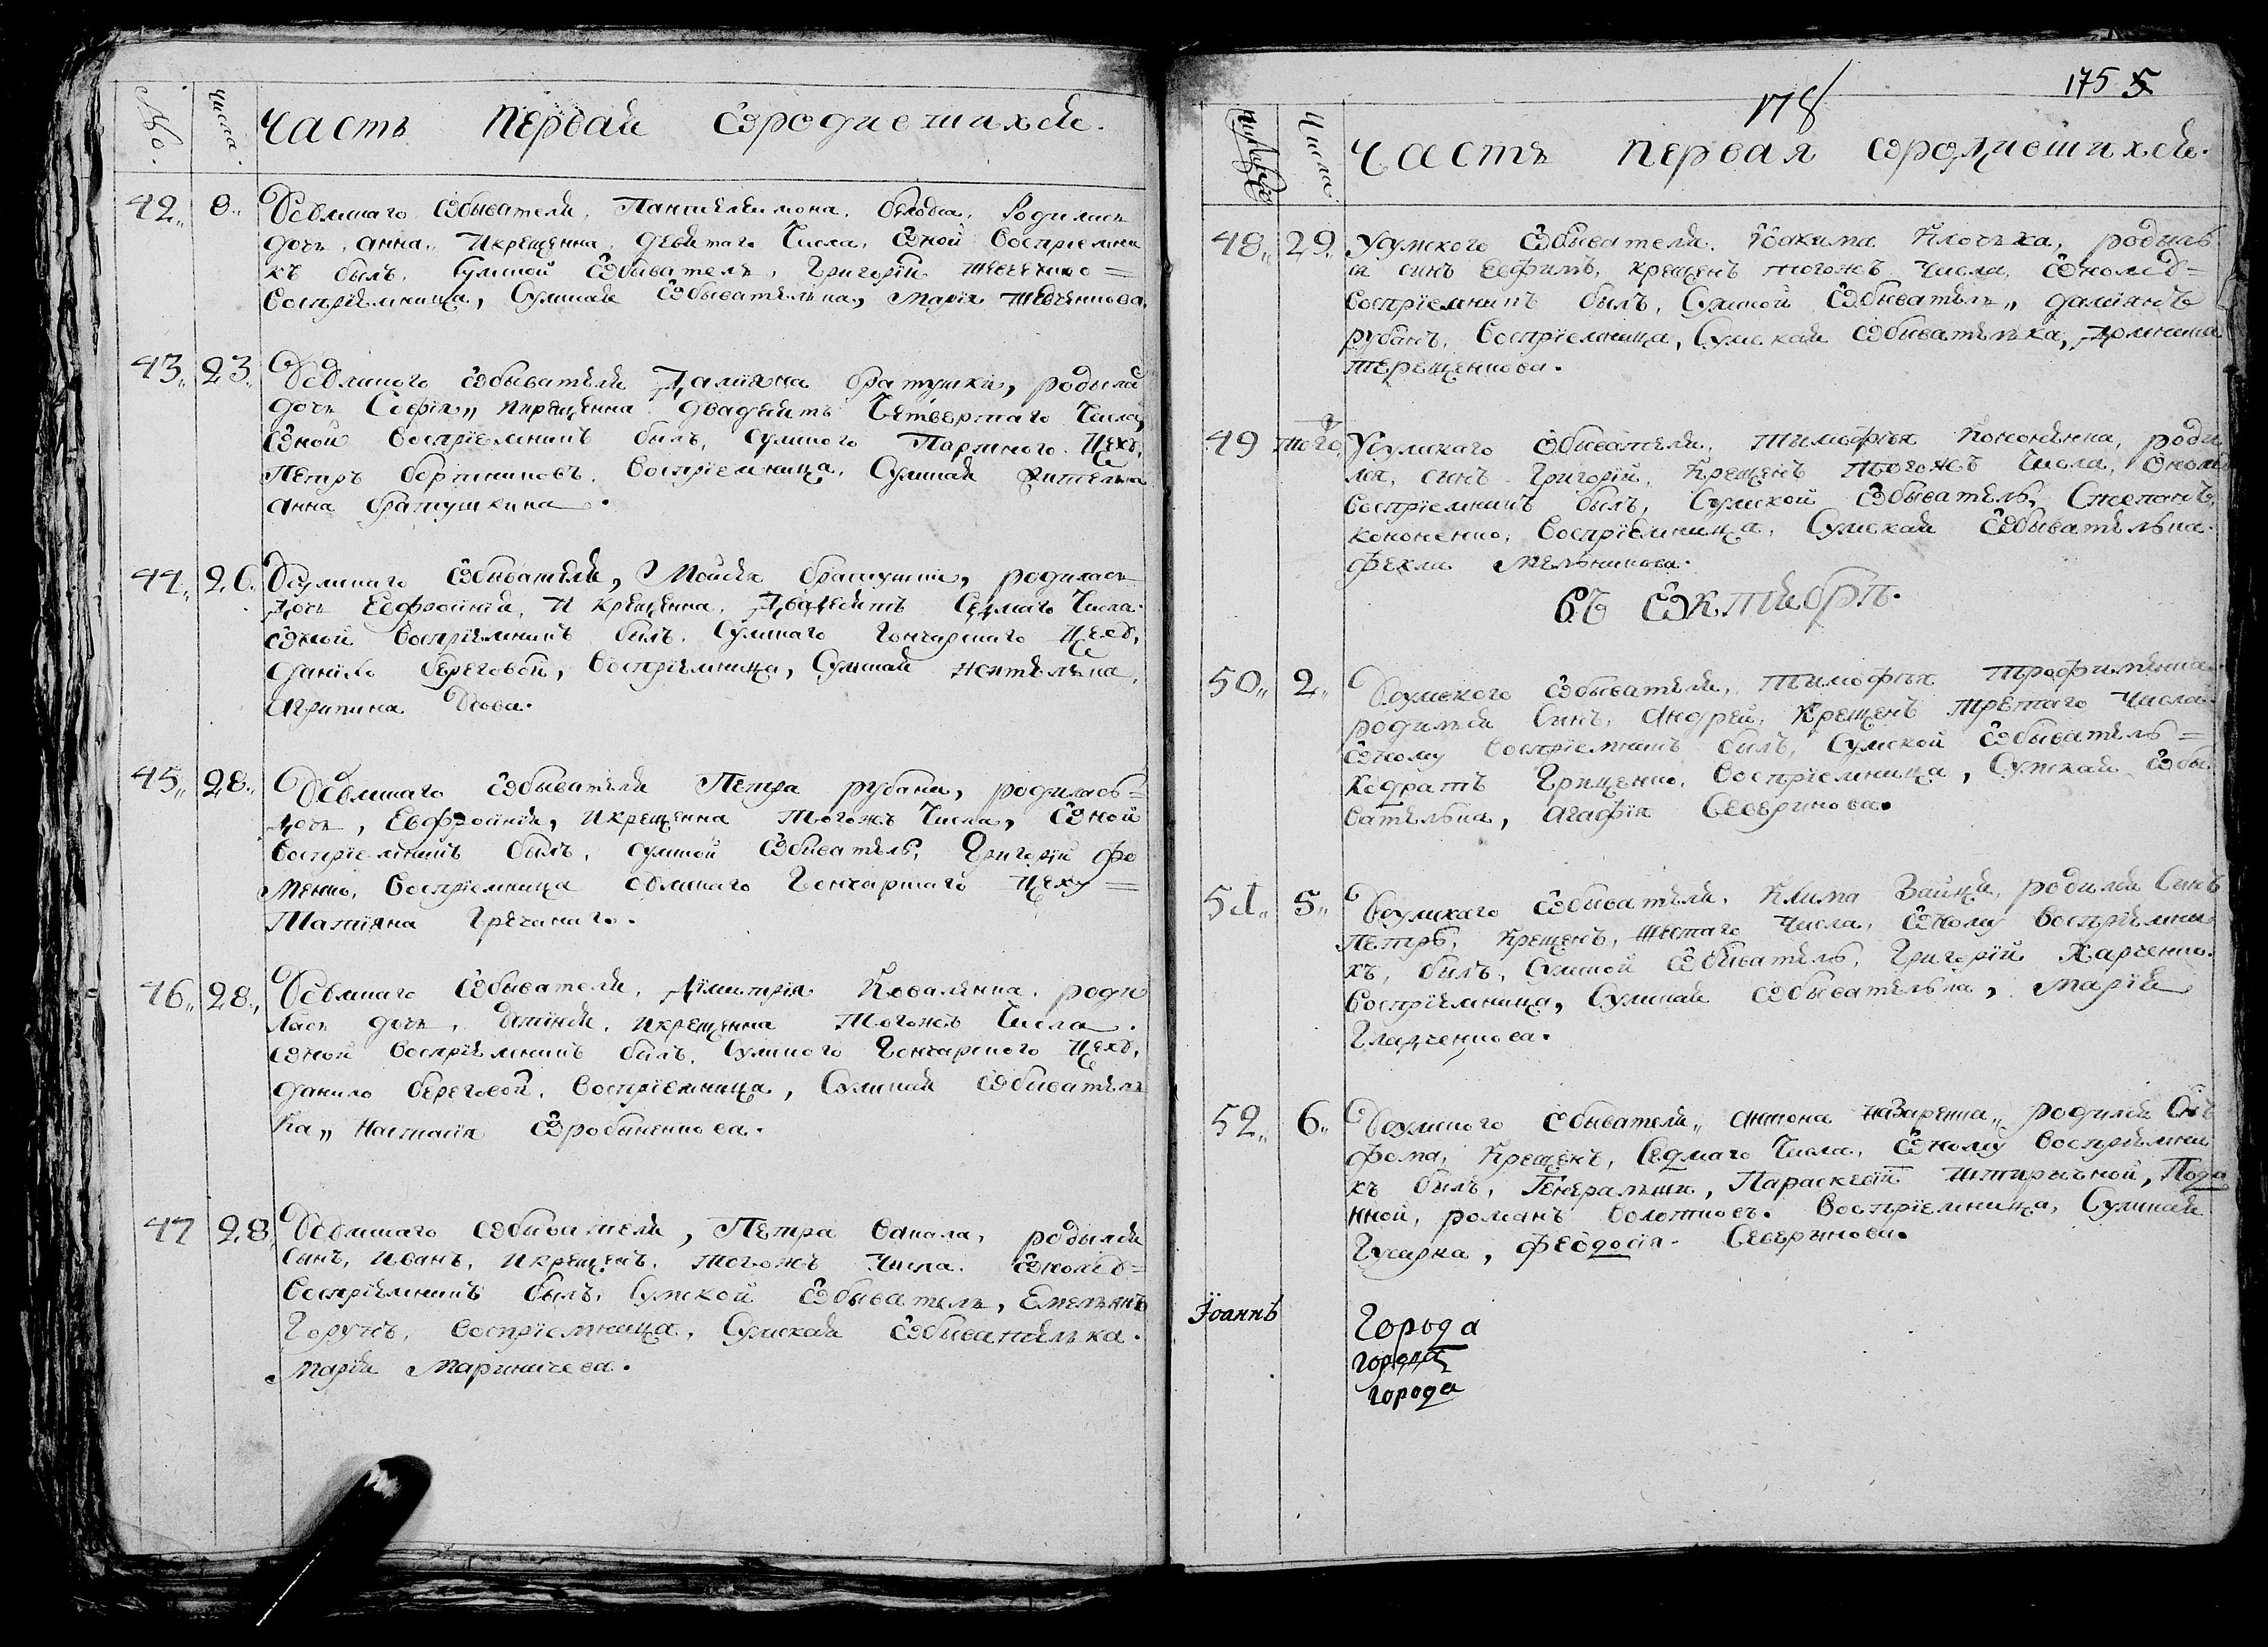 №
числа
Часть Первая Ѡродившихся.
42„ 8„ Усумскаго Ѡбывателя, Пантилеимона, родилась
дочь, анна, Икрещенна, девятаго Числа, Ѡной восприемни
къ былъ, Сумской Ѡбыватель, Григорїй Шевченко =
восприемница, Сумская Ѡбывателка, марїя Шевченкова,
43„ 23. Усумского Ѡбывателя Дамїяна братушки, родыла
дочь Софїя„ Икрещенна двадцять Четвертаго Числа,
Ѡной восприемникъ былъ, сумского Партного Цеху,
Петръ бортниковъ, восприемница, Сумская жителка
анна братушкина.
44„ 26. Усумскаго Ѡбывателя, Мойсея братушки, родилась
дочь Еѵфросинїя, И крещенна, Двадцять Седмаго Числа.
Ѡной восприемникъ былъ, Сумскаго Гончарскаго Цеху,
данило береговой, восприемница, Сумская жителка,
Агрипина
45„ 28„ Усумскаго Ѡбывателя Петра рубана, родилась =
дочь, Евфросинїя, Икрещенна Тогожъ Числа, Ѡной
восприемникъ былъ, сумской Ѡбыватель, Григорїй Фо
менко, восприемница сумскаго Гончарскаго Цеху =
Татїяна Гречанаго.
46„ 28„ Усумскаго Ѡбывателя, Димитрїя Коваленка, роди
лась дочь, икрещенна Тогожъ Числа.
Ѡной восприемникъ былъ, Сумского Гончарского Цеху,
данило береговой, восприемница, Сумская Ѡбыватель
ка„ Настасїя Ѡробченкова.
47 28, Усумскаго Ѡбывателя, Петра вакала, родылся
сынъ, иванъ, икрещенъ, тогожъ Числа, Ѡному =
восприемникъ былъ, Сумской Ѡбыватель, Емелиянъ
Горунъ, восприемница, Сумская Ѡбывателька.
марїя Маринычева.
178
175 5
Числа
Часть Первая Ѡродившихся.
48„ 29„ Усумского Ѡбывателя, Їоакима Клочка, родыл
ся синъ Еѵфимъ, крещенъ тогожъ Числа, Ѡному =
восприемникъ былъ, Сумской Ѡбыватель„ дамїянъ
рубанъ, восприемница, Сумская Ѡбывателька, домникия
терещенкова.
49 того Усумскаго Ѡбывателя, Тимофея Кононенка, роди
лся, синъ Григорїй, крещенъ тогожъ Числа, Ѡному
восприемникъ былъ, Сумской Ѡбыватель, Стефанъ,
кононенко, восприемница, Сумская Ѡбывателька.
фекла Мельникова.
въ Ѡктября.
50„ 2„ Усумского Ѡбывателя, Тимофея Трофименка
родился Синъ, Андрей, Крещенъ третаго Числа
Ѡному восприемникъ былъ, Сумской Ѡбыватель =
кодратъ Грищенко, восприемница, Сумская Ѡбы
вателька, Агафїя Северинова.
51„ 5„ Усумскаго Ѡбывателя, Клима Зайця, родился Синъ
Петръ, Крещенъ, шестаго Числа, Ѡному восприемни
къ, былъ, Сумской Ѡбыватель, Григорїй Харченко.
восприемница, Сумская Ѡбывателька, марїя
Гладченкова.
52„ 6„ Усумского Ѡбывателя„ антона Назаренка„ родился Синъ
фома, Крещенъ, Седмаго Числа, Ѡному восприемни
къ былъ, Генеральши, Параскевїи Подда
нной, романъ волотковъ. восприемница, Сумская
Гусарка, феодосїя Северинова.
Їоаннъ
Города
города
города